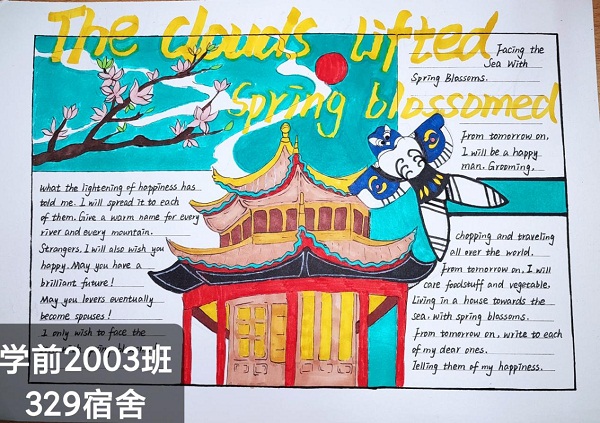 The clouds lifted
Spring blossomed
Facing the
Sea With
Spring Blossoms.
From tomorrow on,
I will be a happy
man. Grooming,
chopping and traveling
all over the world.
From tomorrow on, I will
care foodstuff and vegetable,
Living in a house towards the
sea, with spring blossoms.
From tomorrow on, write to each
of my dear ones.
Telling them of my happiness.
what the lightening of happiness has
told me. I will spread it to each
of them. Give a warm name for every
river and every mountain.
Strangers, I will also wish you
happy. May you have a
brilliant future!
May you lovers eventually
become spouses!
I only wish to face the
学前2003班
329宿舍